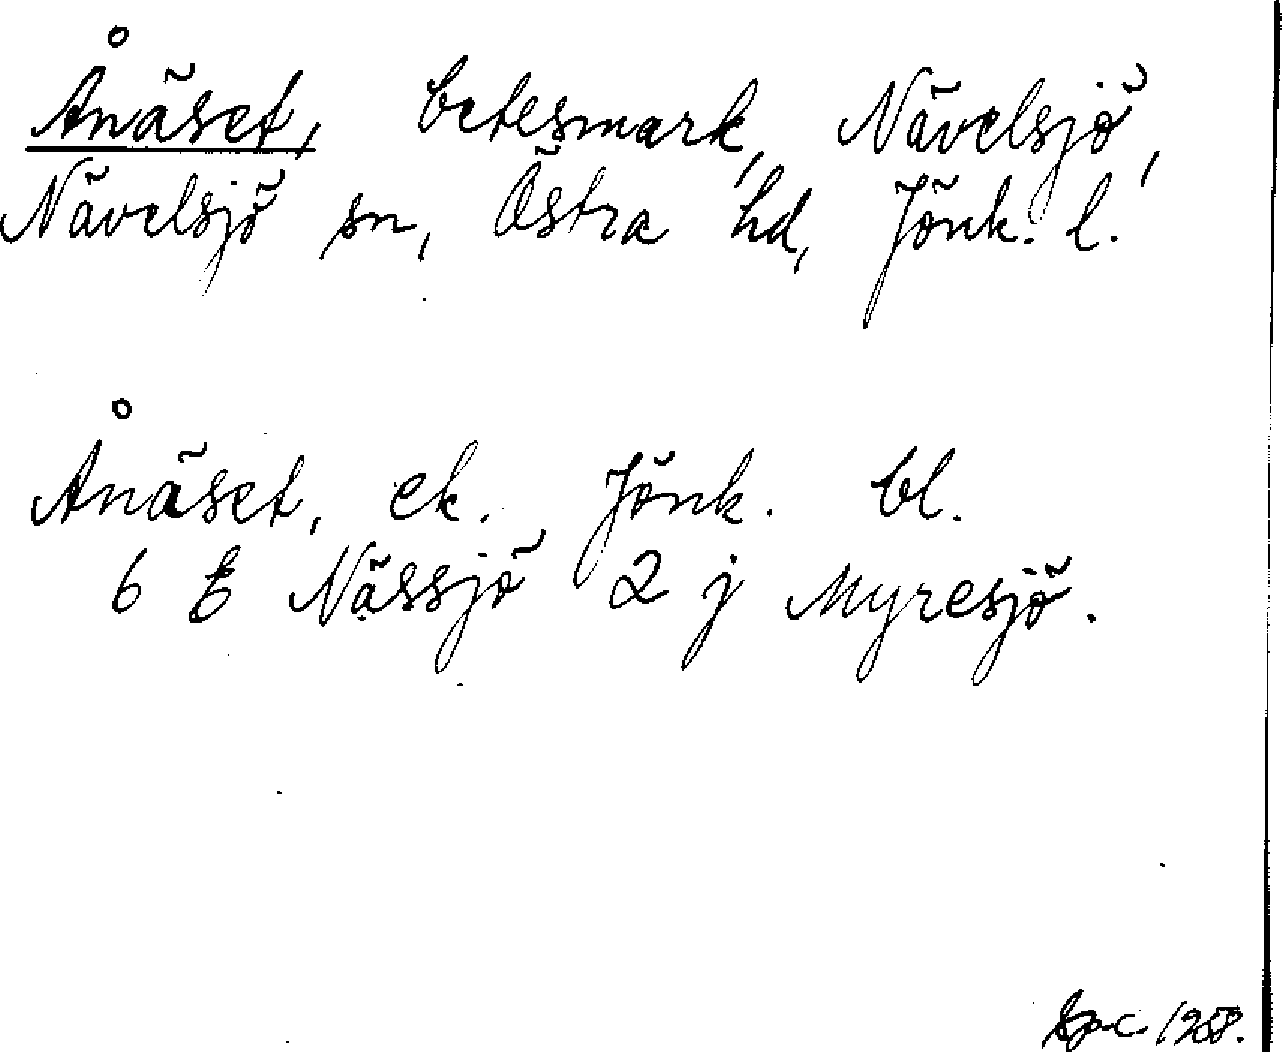 Ånäset, betesmark, Nävelsjö,
Nävelsjö sn, Östra hd, Jönk. l.
Ånäset, ek. Jönk. bl.
6 E Nässjö 2 j Myresjö.